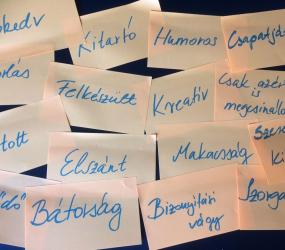 Kitartó
Humoros
Csapatjá
Felkészült
Kreatív
Csak azért
is
megcsinálo
Elszánt
Makacsság
Bátorság
Bizonyítási
vágy
Szorga